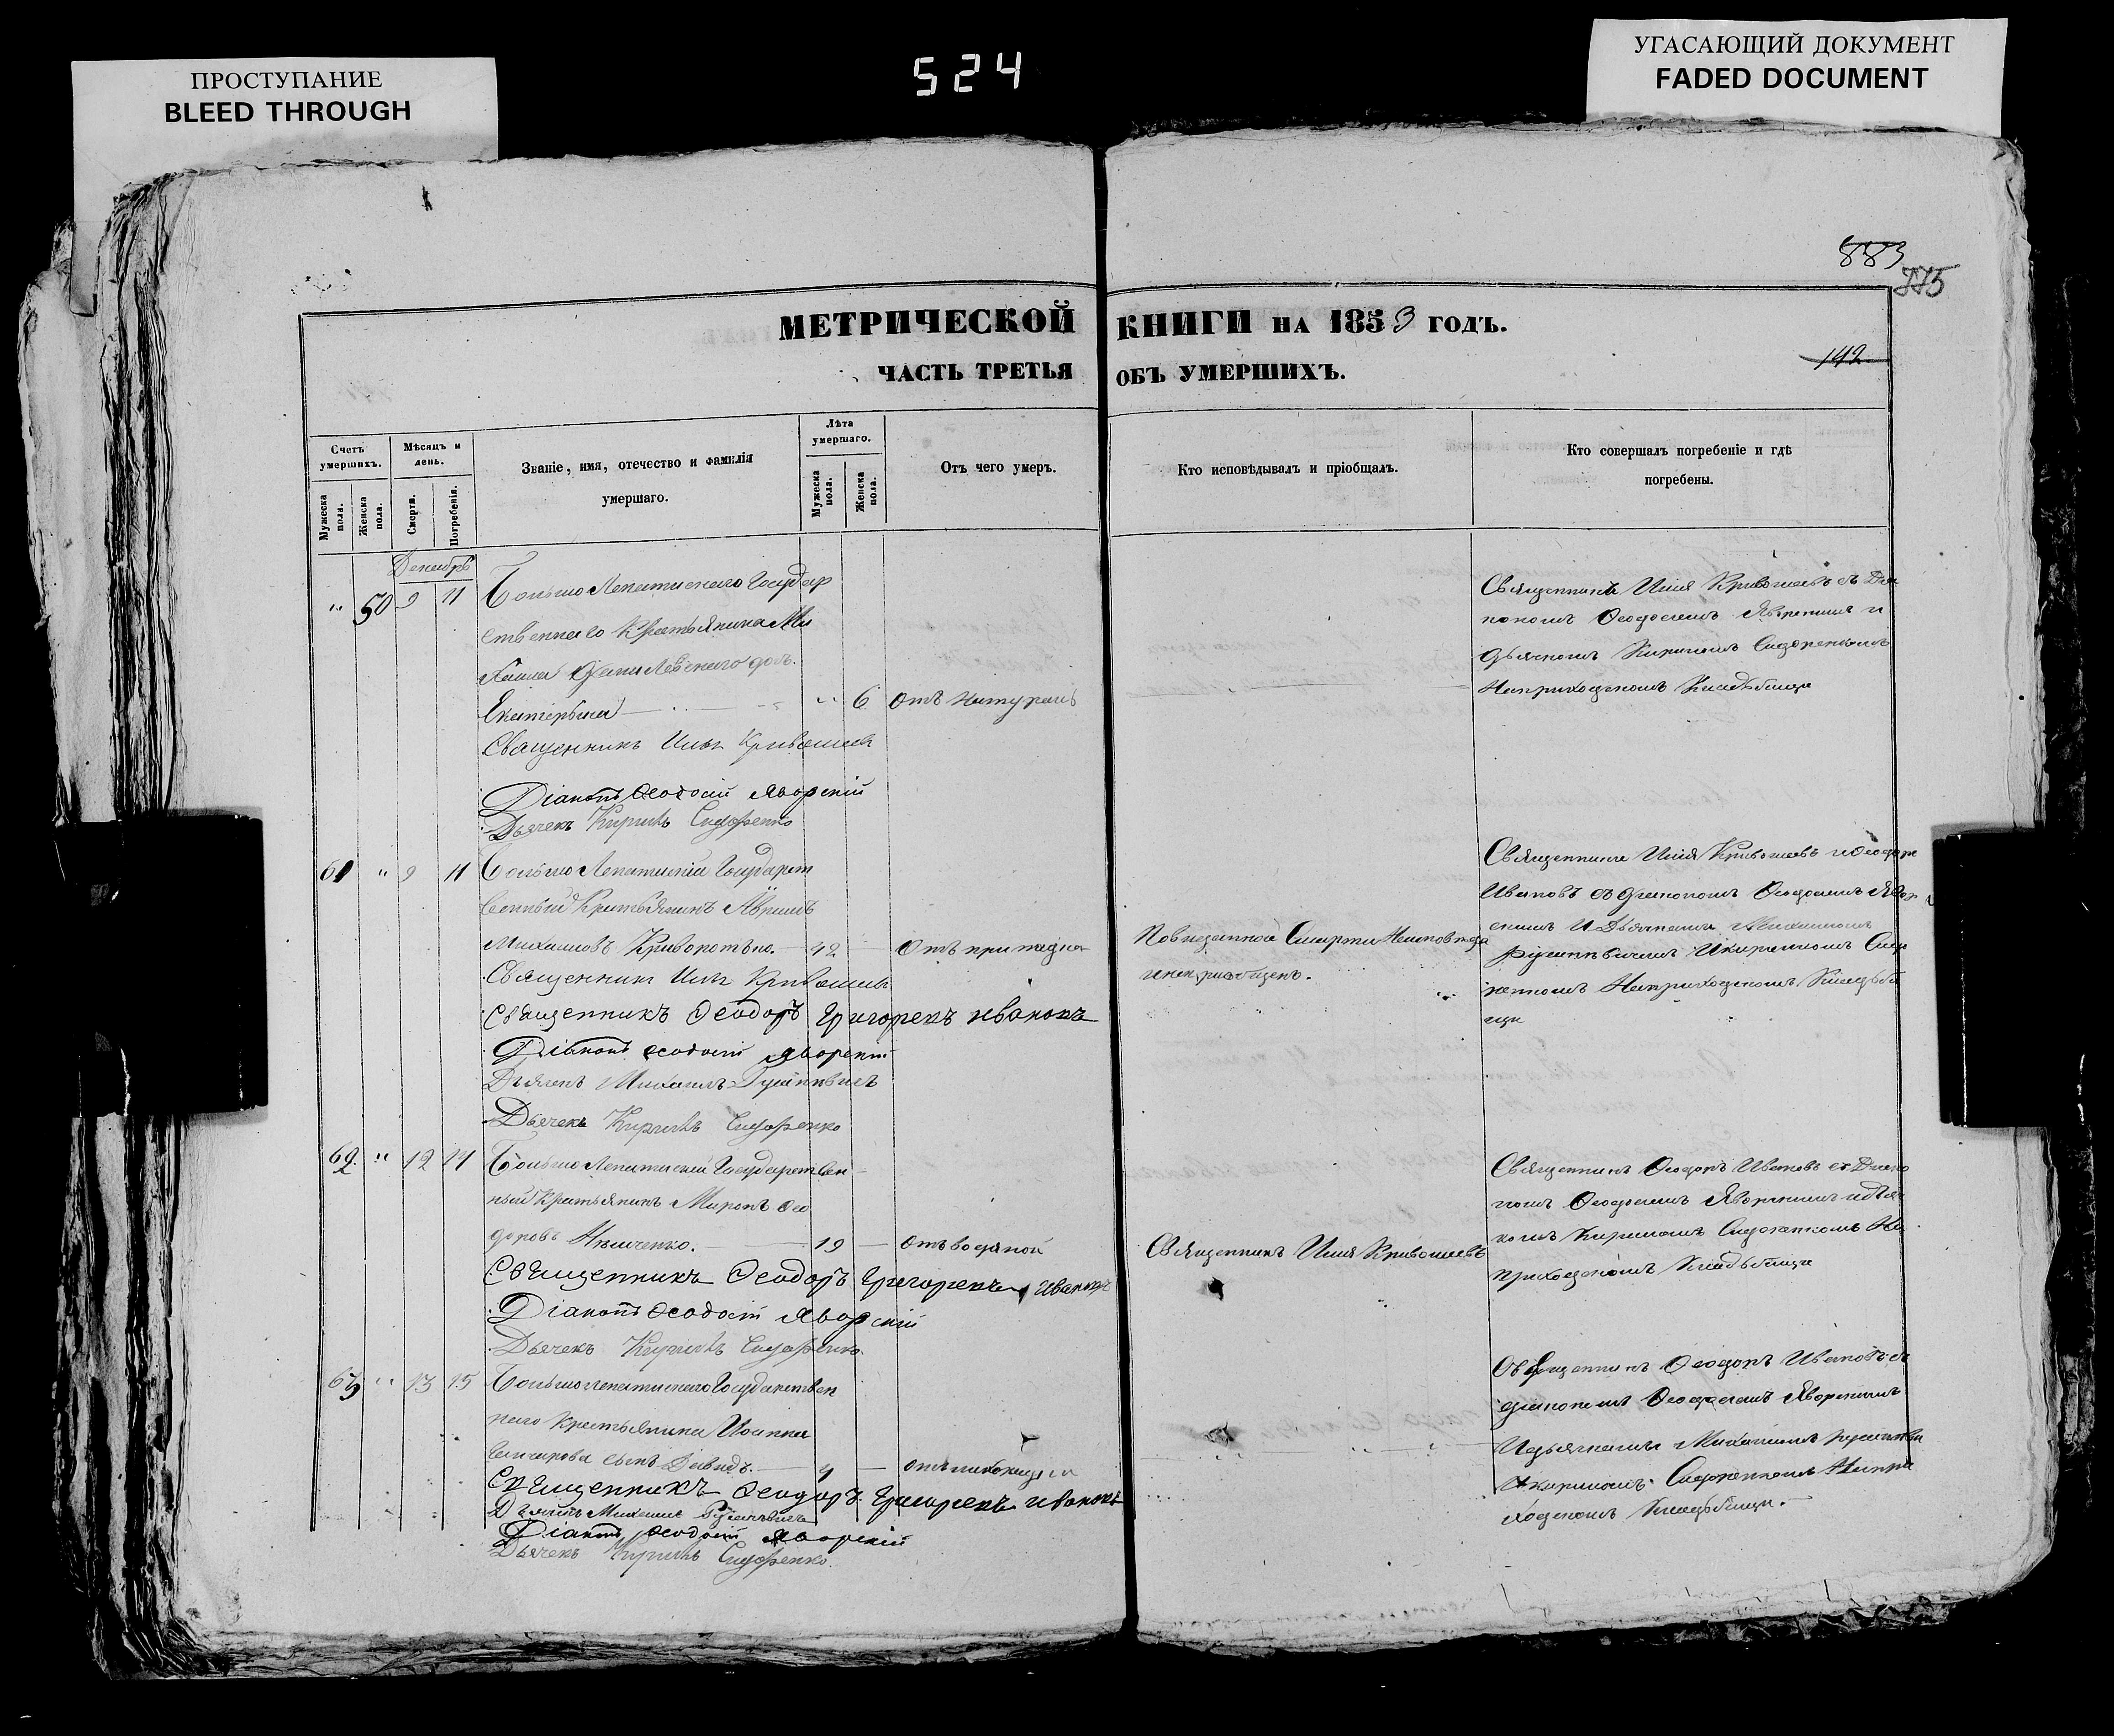 ПРОСТУПАНИЕ
BLEED THROUGH
524
УГАСАЮЩИЙ ДОКУМЕНТ
FADED DOCUMENT
883
775
МЕТРИЧЕСКОЙ КНИГИ НА 1853 ГОДЪ.
142
ЧАСТЬ ТРЕТЬЯ ОБЪ УМЕРШИХЪ.
Счетъ умершихъ.
Мужеска пола.
Женска пола.
Мѣсяцъ и день.
Смерти.
Погребенія.
Званіе, имя, отечество и фамилія
умершаго.
Лѣта умершаго.
Мужеска пола.
Женска пола.
Отъ чего умеръ.
Кто исповѣдывалъ и пріобщалъ.
Кто совершалъ погребеніе и гдѣ
погребены.
Декабрь
" 50 9 11 Большо Лепатискаго Государ
ственнаго Крестьянина Ми
дочь
Екатерина " 6 отъ натуры
Священникъ Илья Кривошеевъ
Діаконъ Ѳеодосій Яворскій
Дьячекъ Кирилъ Сидоренко
Священникъ Илія Кривошеевъ съ Діа
кономъ Ѳеодосіемъ Яворскимъ и
дьячкомъ Кириломъ Сидоренкомъ
На приходскомъ Кладбищѣ
61 " 9 11 Большо Лепатискій Государст
венный Крестьянинъ
Михаиловъ 42 отъ припадка
Священникъ Илья Кривошеевъ
Священникъ Ѳеодоръ Григорьевъ Ивановъ
Діаконъ Ѳеодосій Яворскій
Дьячекъ Михаилъ
Дьячекъ Кирилъ Сидоренко
По внезапной Смерти
Священники Илія Кривошеевъ и Ѳеодоръ
Ивановъ съ діакономъ Ѳеодосіемъ Явор
скимъ и Дьячками Михаиломъ
и Кириломъ Сидо
ренкомъ На приходскомъ Кладби
щѣ
62 " 12 14 Большо Лепатискій Государствен
ный Крестьянинъ Миронъ Ѳео
доровъ 19 отъ водяной
Священникъ Ѳеодоръ Григорьевъ Ивановъ
Діаконъ Ѳеодосій Яворскій
Дьячекъ Кирилъ Сидоренко
Священникъ Илія Кривошеевъ
Священникъ Ѳеодоръ Ивановъ съ Діако
номъ Ѳеодосіемъ Яворскимъ и дьяч
комъ Кириломъ Сидоренкомъ На
приходскомъ Кладбищѣ
63 " 13 15 Большо Лепатискаго Государствен
наго Крестьянина Иоанна
сынъ Давидъ 4
Священникъ Ѳеодоръ Григорьевъ Ивановъ
Дьячекъ Михаилъ
Діаконъ Ѳеодосій Яворскій
Дьячекъ Кирилъ Сидоренко
Священникъ Ѳеодоръ Ивановъ съ
діакономъ Ѳеодосіемъ Яворскимъ
И дьячками Михаиломъ
и Кириломъ Сидоренкомъ На при
ходскомъ Кладбищѣ.